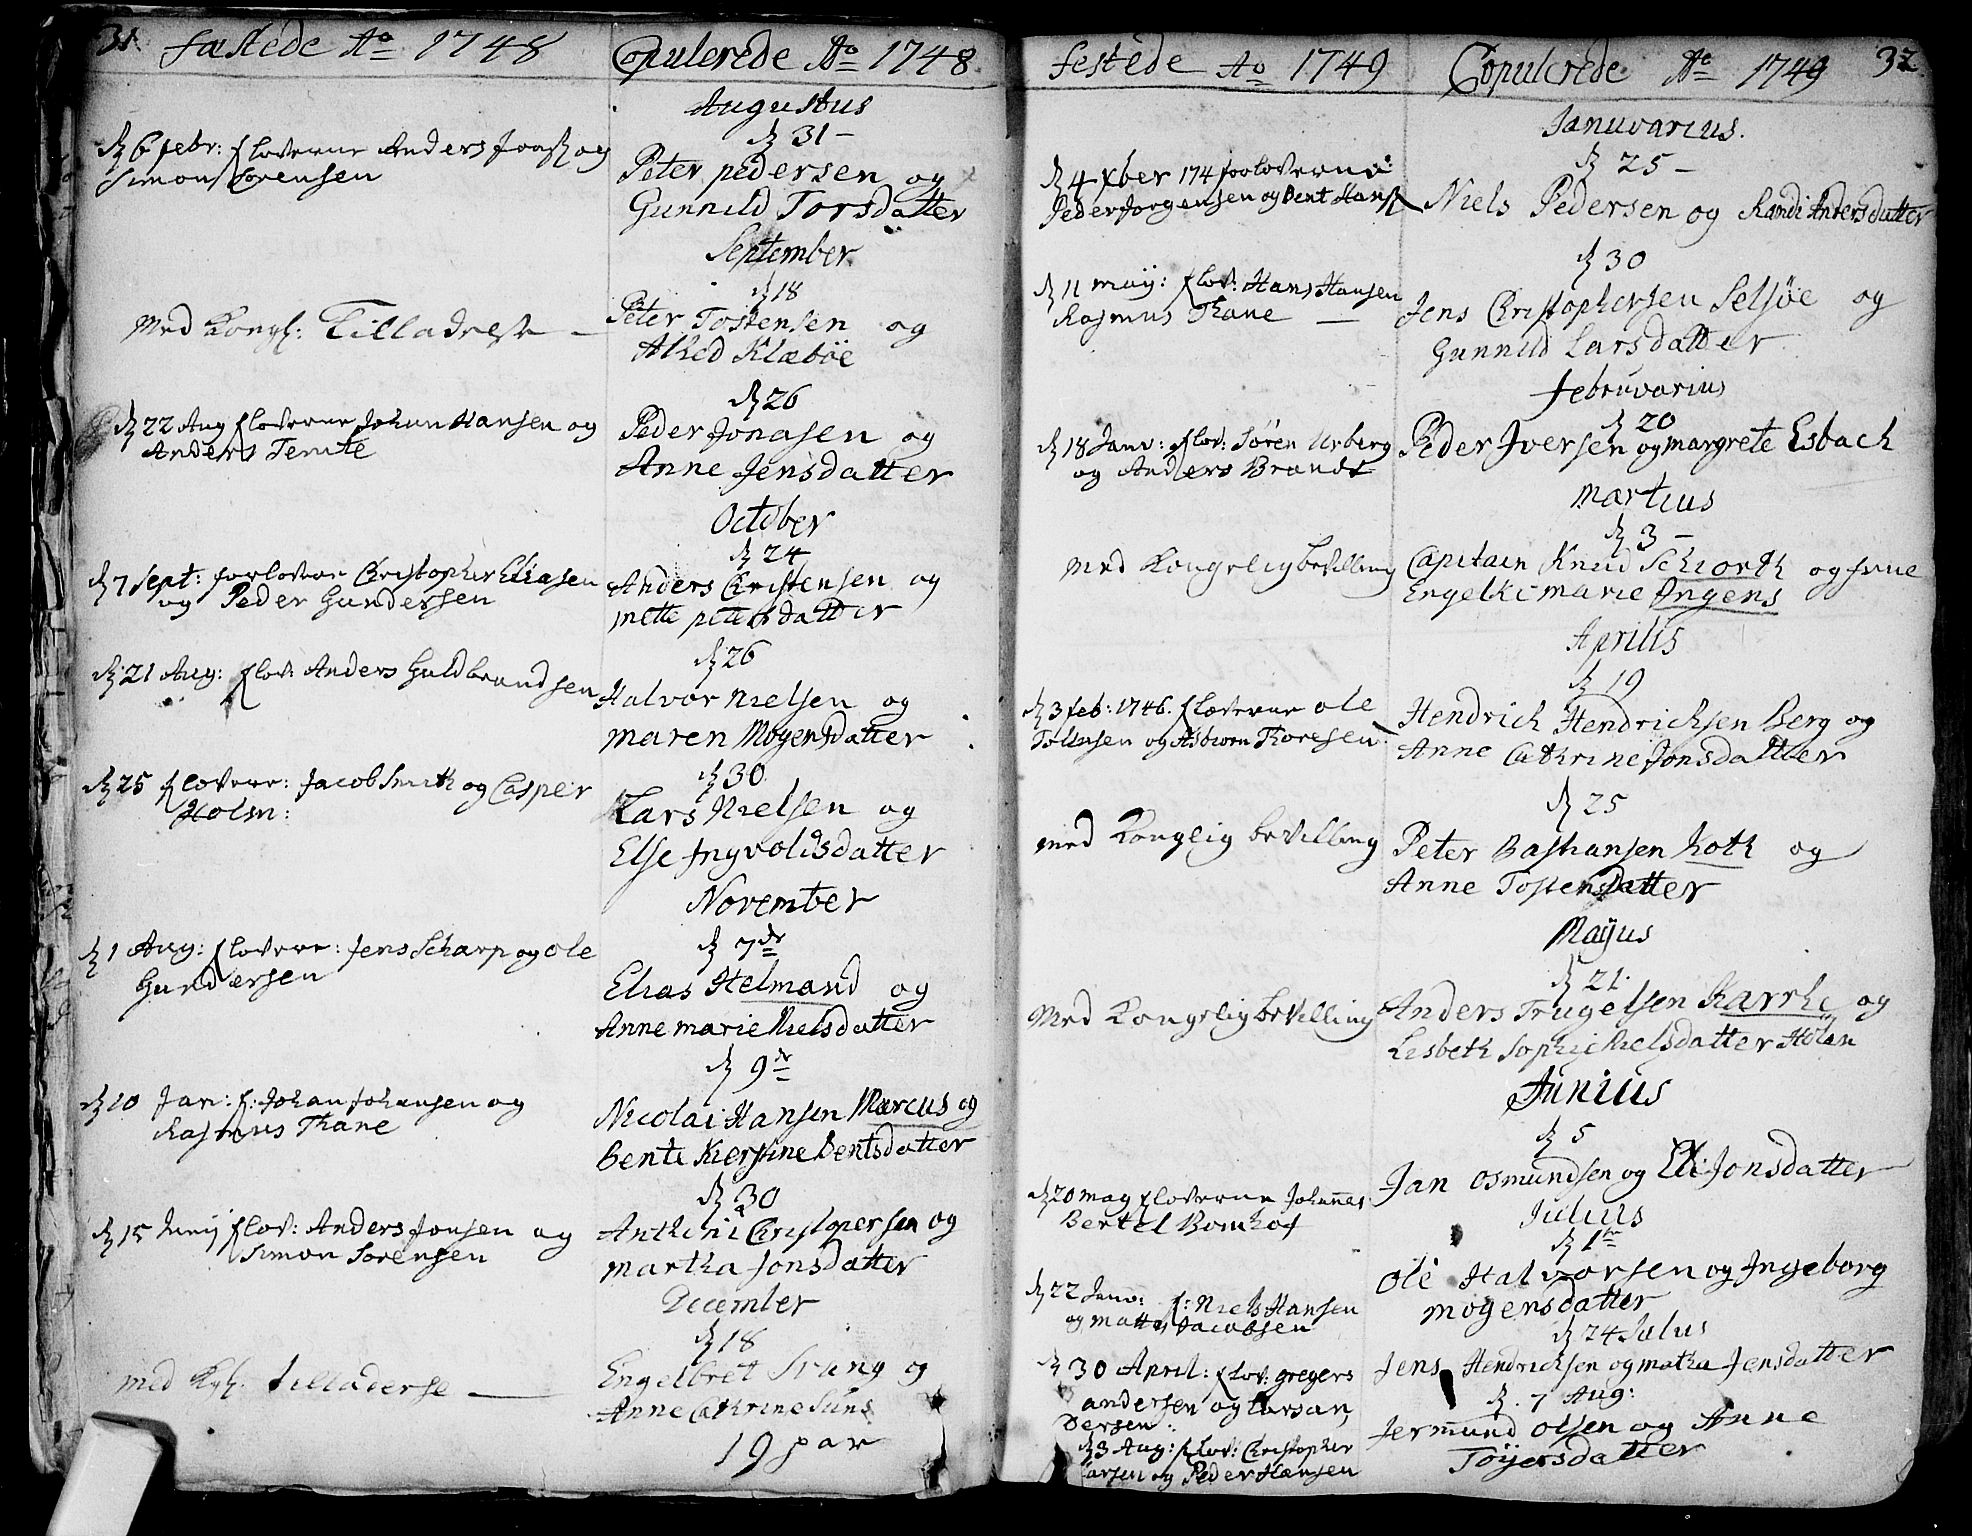 31. fæstede Ao 1748
d 6 febr: floverne Anders Jonss og
Simon Sørensen
Med Kongl: Tilladelse —
d 22 Aug floverne Johan Hansen og
Anders Temte
d 7 Sept: forlovere Christopher Eliasen
og Peder Gundersen
d: 21 Aug: flov: Anders Guldbrandsen
d 25 flovere: Jacob Smith og Casper
Holm:
d 1 Aug: flovere: Jens Scharp og Ole
Gundersen
d 10 Jan: f: Johan Johansen og
Rasmus Thane
d 15 Junij flov: Anders Jonsen og
Simon Sorensen
med Kgl. tilladelse —
Copulerede Ao 1748
Augustus
d 31 —
Peter pedersen og
Gunnild Torsdatter
September
d 18
Peter Tostensen og
Alhed Klæbøe
d 26
Peder Jonasen og
Anne Jensdatter
October
d 24
Anders Christensen og
mette petersdatter
d 26
Halvor Nielsen og
maren Mogensdatter
d 30
Lars Nielsen og
Else Ingvoldsdatter
November
d 7de
Elias Helmand og
Anne marie Nielsdatter
d 9de
Nicolai Hansen Marcus og
bente Kierstine Bentsdatter
d 30
Anthoni Christopersen og
martha Jonsdatter
December
d 18
Engelbret og
Anne Cathrine Suns
19 par
festede Ao 1749
d 4 Xber 174 forloverne
Peder Jorgensen og Bent Hanss
d 11 maij: flov: Hans Hansen
Rasmus Thane —
d 18 Janv: flov: Søren Urberg
og Anders Brandt
med Kongelig bevilling
d 3 feb: 1746. floverne ole
Tollensen og Asbiorn Thoresen
med Konglig bevilling
Med Kongelig bevilling
d 20 mag floverne Johannes
Bertel Bomhof
d 22 Janv: f: Niels Hansen
og mattis Jacobsen
d 30 April: flov: gregers
andersen og Lars an
dersen:
d 3 Aug: flov: Christopher
larsen og Peder Hansen
Copulerede Ao 1749 32
Januvarius.
d 25 —
Niels Pedersen og Randi Andersdatter
d 30
Jens Christophersen Selsøe og
Gunnild Larsdatter
februvarius
d 20
Peder Iversen og margrete Esbach
martius
d 3 —
Capitain Knud Schiorth og frue
Engelke marie Angens
Aprilis
d 19
Hendrich Hendrichsen Berg og
Anne Cathrine Jonsdatter
d 25
Peter Bashansen Koth og
Anne Tostensdatter
Maijus
d 21.
Anders Trugelsen Karrhe og
Lisbeth Sophie Nielsdatter Holan
Junius
d 5
Jan Osmundsen og Eli Jonsdatter
Julius
d 1te
Ole Halvorsen og Ingeborg
mogensdatter
d 24 Julius
Jens Hendrichsen og matha Jensdatter
d. 7 Aug:
Jermund olsen og Anne
Tøijersdatter